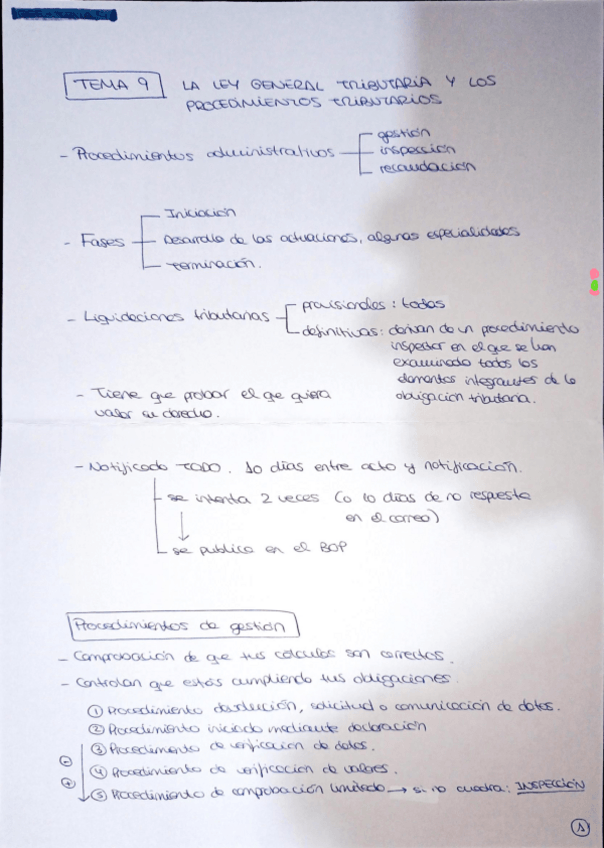 TEMA 9 LA LEY GENERAL TRIBUTARIA Y LOS
PROCEDIMIENTOS TRIBUTARIOS
- Procedimientos administrativos
gestión
inspección
recaudación
- Fases
Iniciación
Desarrollo de las actuaciones, algunas especialidades
terminación.
- Liquidaciones tributarias
provisionales: todas
definitivas: derivan de un procedimiento
inspector en el que se han
examinado todos los
elementos integrantes de la
obligación tributaria.
- Tiene que probar el que quiera
valor su derecho.
- Notificado TODO. 10 días entre acto y notificación.
se intenta 2 veces (o 10 días de no respuesta
en el correo)
se publica en el BOP
Procedimientos de gestión
- Comprobación de que tus cálculos son correctos.
- Controlan que estás cumpliendo tus obligaciones.
① Procedimiento devolución, solicitud o comunicación de datos.
② Procedimiento iniciado mediante declaración
③ Procedimiento de verificación de datos.
④ Procedimiento de verificación de valores.
⑤ Procedimiento de comprobación limitada → si no cuadra: INSPECCIÓN
⊖
⊕
①